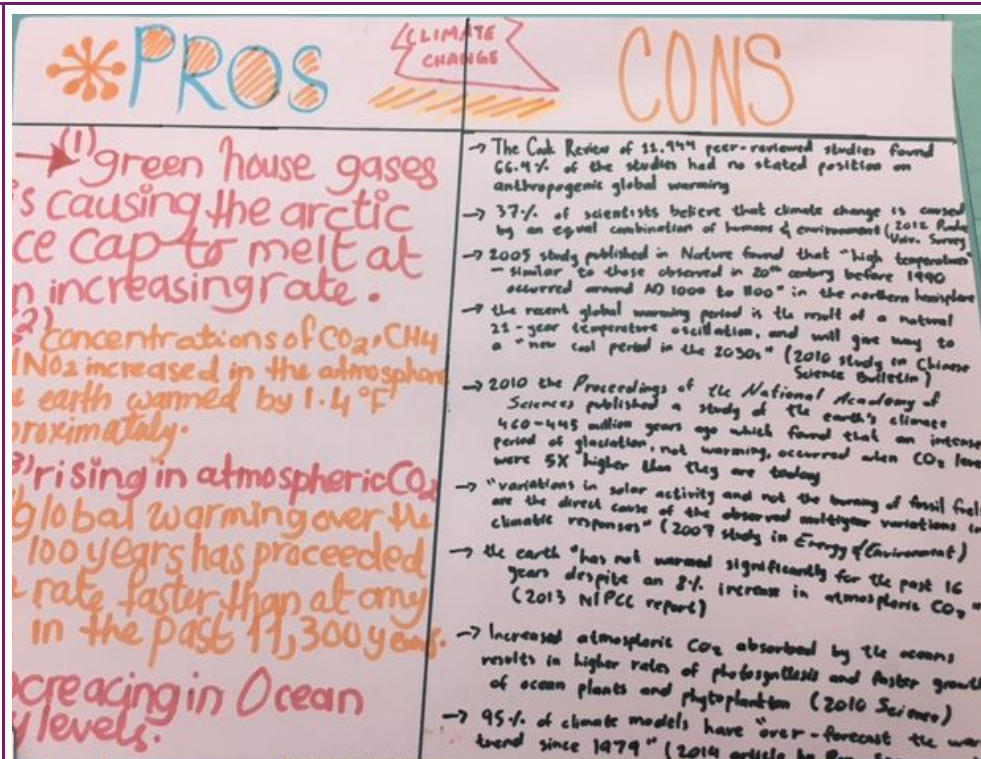 PROS
CLIMATE
CHANGE
CONS
(1) green house gases
's causing the arctic
ce cap to melt at
n increasing rate.
2)
concentrations of CO₂, CH4
NO2 increased in the atmosphere
e earth warmed by 1.4°F
proximataly.
3) rising in atmospheric CO₂
global warming over the
100 years has proceeded
rate faster than at any
in the past 11,300 years.
creacing in Ocean
y levels.
→ The Cook Review of 11,944 peer-reviewed studies found
66.4% of the studies had no stated position on
anthropogenic global warming
→ 37% of scientists believe that climate change is caused
by an equal combination of humans & environment (2012
Univ. Survey
→ 2005 study published in Nature found that "high temperatures"
– similar to those observed in 20th century before 1990
occurred around AD 1000 to 1100" in the northern hemisphere
→ the recent global warming period is the result of a natural
21-year temperature oscillation, and will give way to
a "new cool period in the 2030s" (2010 study in Chinese
Science Bulletin)
→ 2010 the Proceedings of the National Academy of
Sciences published a study of the earth's climate
460-445 million years ago which found that an intense
period of glaciation, not warming, occurred when CO₂ level
were 5X higher than they are today
→ "variations in solar activity and not the burning of fossil fuel
are the direct cause of the observed multiyear variations in
climatic responses" (2007 study in Energy & Environment)
→ the earth "has not warmed significantly for the past 16
years despite an 8% increase in atmospheric CO₂"
(2013 NIPCC report)
→ Increased atmospheric CO₂ absorbed by the oceans
results in higher rates of photosynthesis and faster growth
of ocean plants and phytoplankton (2010 Science)
→ 95% of climate models have "over-forecast the war
trend since 1979" (2014 article by